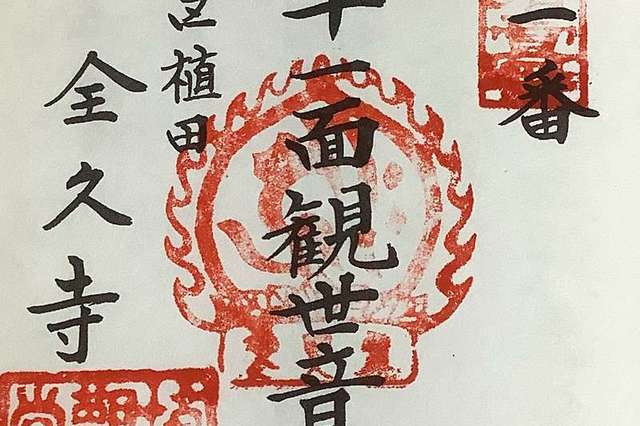 一番
十一面観世音
区植田
全久寺